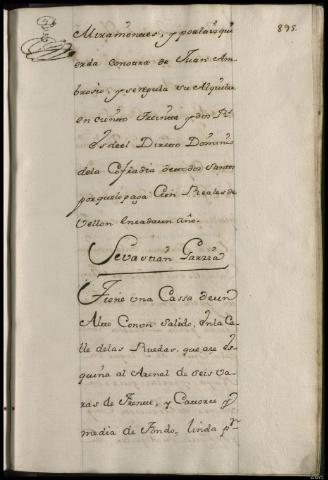 895.
Miramontes, y por la izqui
erda con otra de Juan Am
brosio, y se regula su Alquiler
en ciento treinta y dos Rs.
es del Directo Dominio
de la Cofradia de todos Santos
por quelo paga Cien Reales de
Vellon en cada un año.
Sevastian Garzia
Tiene una Cassa de un
Alto Con un Salido, en la Ca
lle de las Ruedas, que aze es
quina al Arenal de seis va
ras de frente, y Catorce y
media de fondo, linda pr.